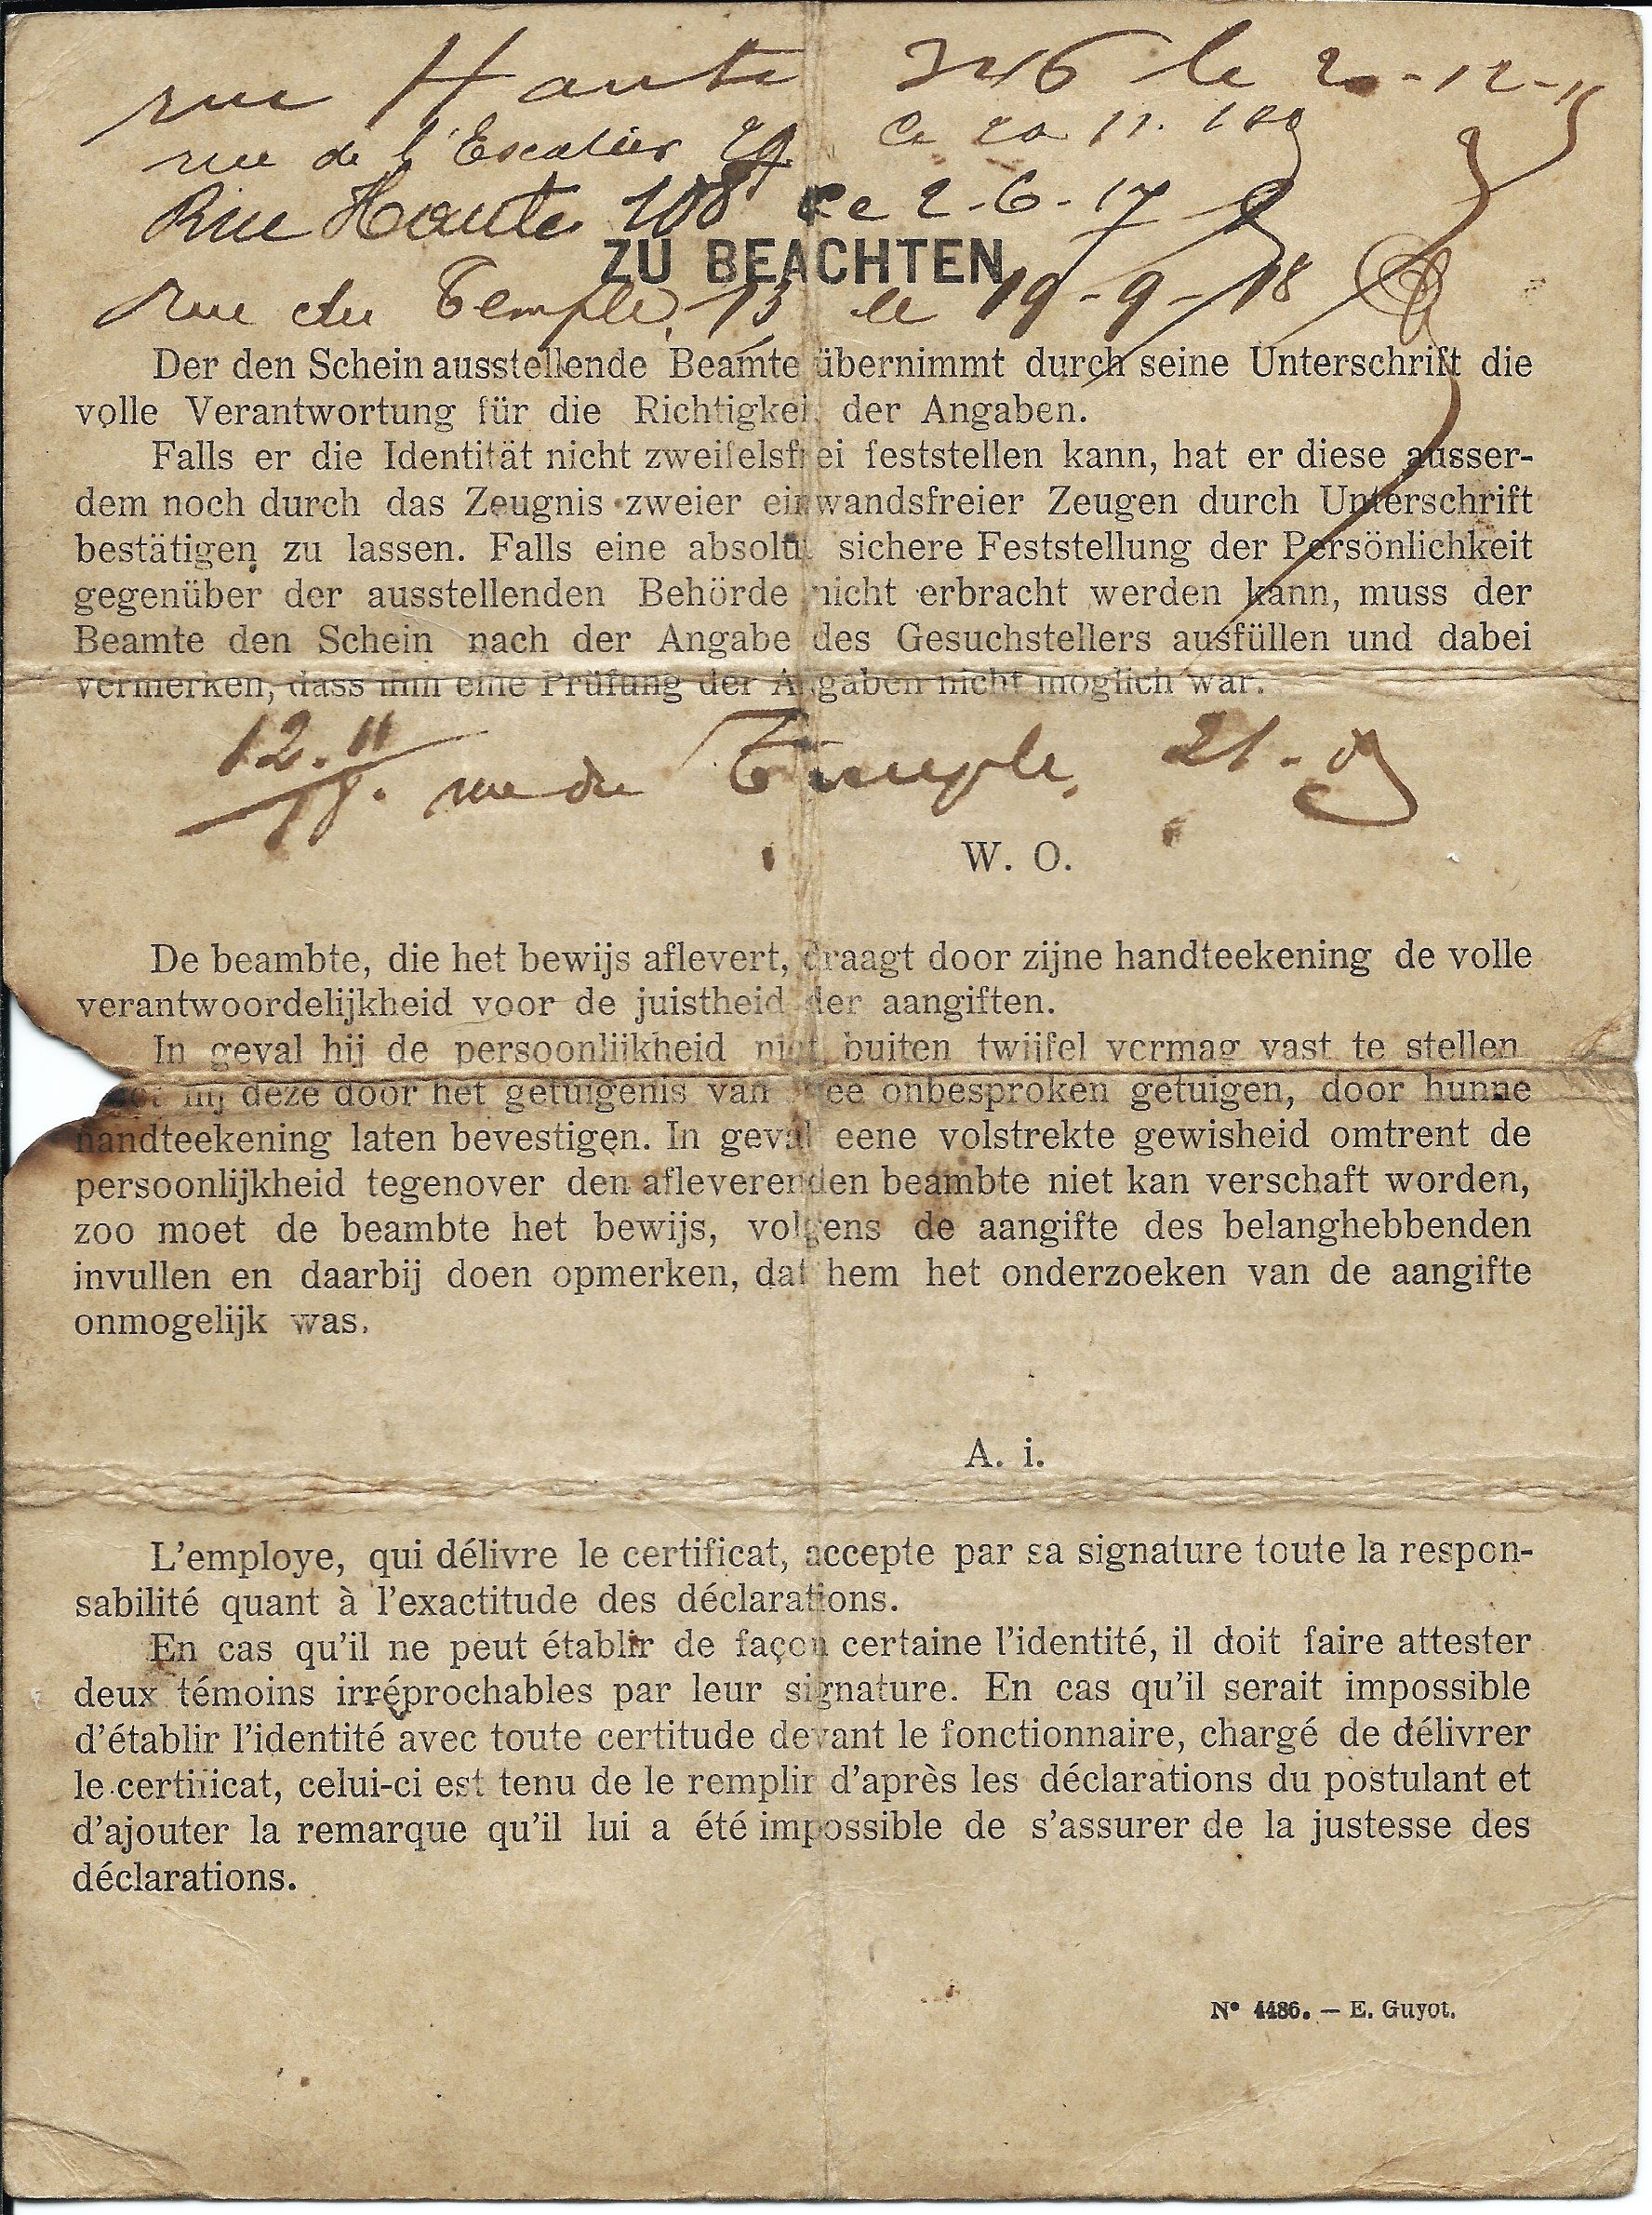 rue Haute 346 le 20-12-
rue de l'Escalier 29 le 20 11.
Rue Haute 108 le 2-6-17
ZU BEACHTEN
Rue du Temple, 13 le 19-9-18
Der den Schein ausstellende Beamte übernimmt durch seine Unterschrift die
volle Verantwortung für die Richtigkeit der Angaben.
Falls er die Identität nicht zweifelsfrei feststellen kann, hat er diese ausser-
dem noch durch das Zeugnis zweier einwandsfreier Zeugen durch Unterschrift
bestätigen zu lassen. Falls eine absolut sichere Feststellung der Persönlichkeit
gegenüber der ausstellenden Behörde nicht erbracht werden kann, muss der
Beamte den Schein nach der Angabe des Gesuchstellers ausfüllen und dabei
vermerken, dass ihm eine Prüfung der Angaben nicht möglich war.
12.11
18. rue du Temple, 21 -
W. O.
De beambte, die het bewijs aflevert, draagt door zijne handteekening de volle
verantwoordelijkheid voor de juistheid der aangiften.
In geval hij de persoonlijkheid niet buiten twijfel vermag vast te stellen
hij deze door het getuigenis van twee onbesproken getuigen, door hunne
handteekening laten bevestigen. In geval eene volstrekte gewisheid omtrent de
persoonlijkheid tegenover den afleverenden beambte niet kan verschaft worden,
zoo moet de beambte het bewijs, volgens de aangifte des belanghebbenden
invullen en daarbij doen opmerken, dat hem het onderzoeken van de aangifte
onmogelijk was.
A. i.
L'employe, qui délivre le certificat, accepte par sa signature toute la respon-
sabilité quant à l'exactitude des déclarations.
En cas qu'il ne peut établir de façon certaine l'identité, il doit faire attester
deux témoins irréprochables par leur signature. En cas qu'il serait impossible
d'établir l'identité avec toute certitude devant le fonctionnaire, chargé de délivrer
le certificat, celui-ci est tenu de le remplir d'après les déclarations du postulant et
d'ajouter la remarque qu'il lui a été impossible de s'assurer de la justesse des
déclarations.
N° 4486. — E. Guyot.